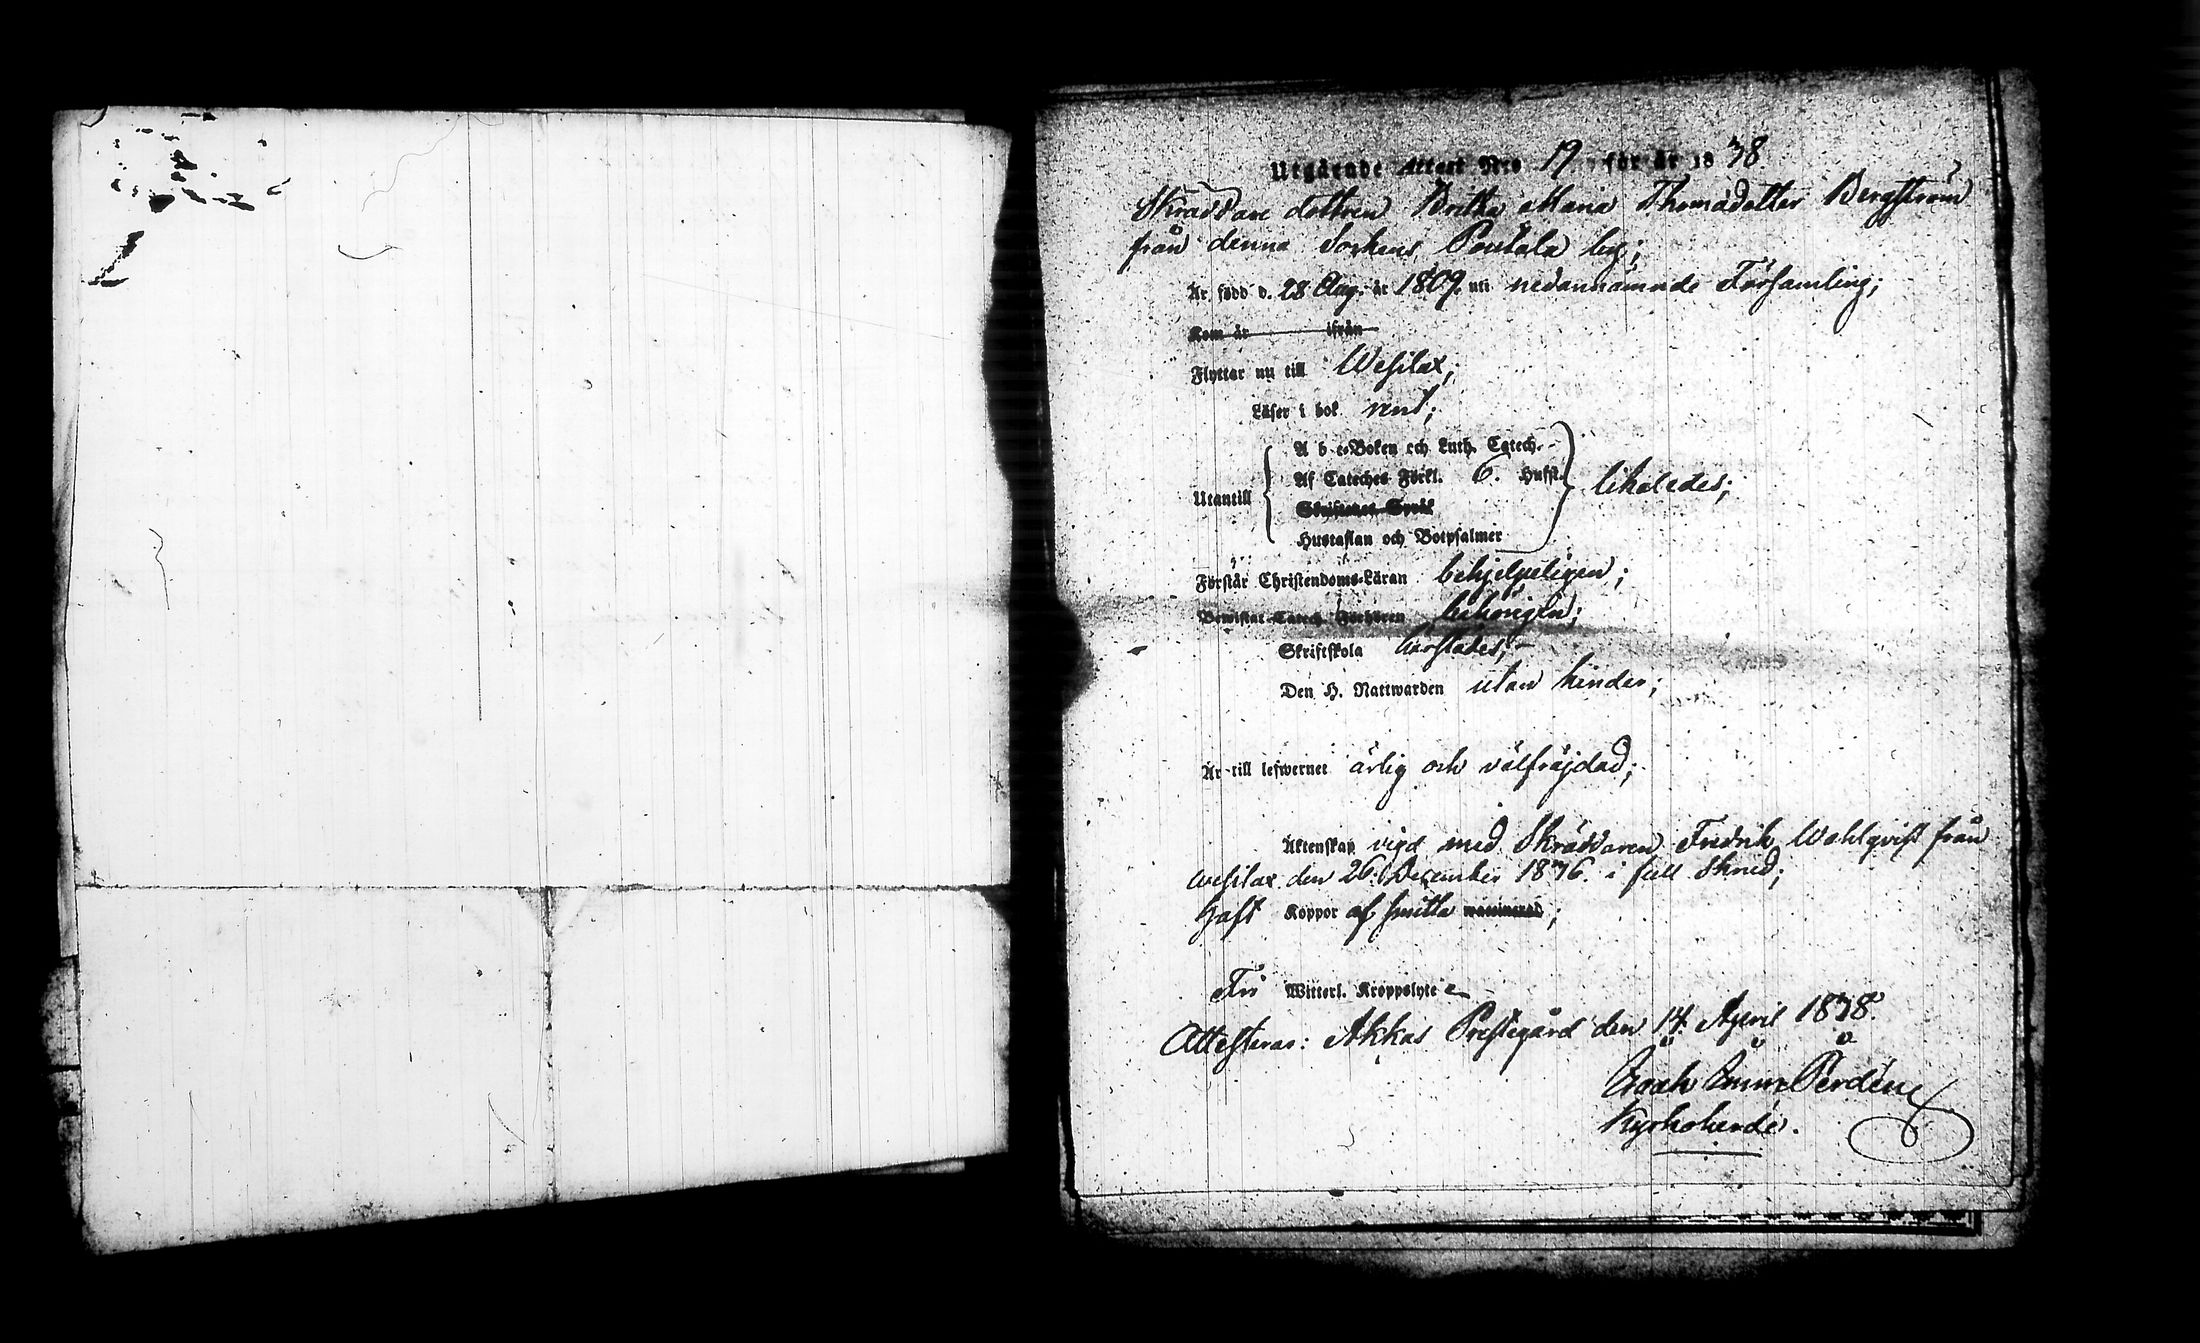 Utgående Attest Nro 19 för år 1838
Skräddare dottren Britha Maria Thomadotter Bergström
från denna Sockens Pontala by;
Är född d. 28 Aug. år 1809. uti nedannämnde Församling;
Kom år ifrån
Flyttar nu till Wesilax;
Läser i bok rent;
A b c-Boken och Luth. Catech.
Af Cateches Förkl. 6. Hufst.
Utantill likaledes;
Skriftenes Språk
Hustaflan och Botpsalmer
Förstår Christendoms-Läran behjelpeligen;
Bewistat Catech. Förhören behörigen;
Skriftskola
Den H. Nattwarden utan hinder;
Är till lefwernet ärlig och välfräjdad;
Äktenskap vigd med Skräddaren Fredrik Wahlqvist från
Wesilax den 26. December 1836. i full Skrud;
Haft Koppor af smitta waccinerad;
Fri Witterl. Kroppslyte
Attesteras: Akkas Prestegård den 14. April 1838.
Perdén
Kyrkoherde.